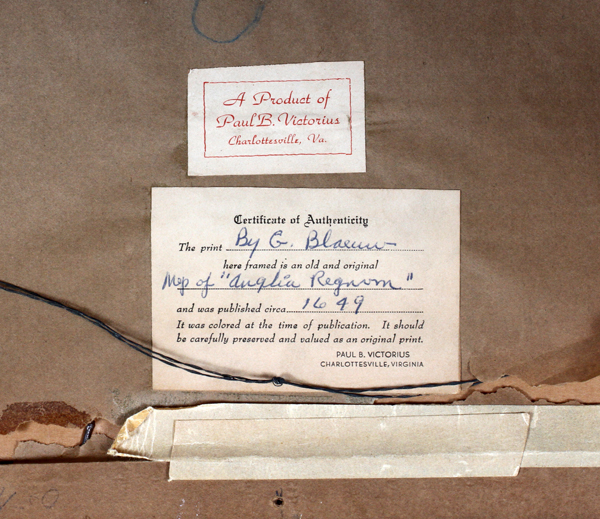 A Product of
Paul B. Victorius
Charlottesville, Va.
Certificate of Authenticity
The print By G. Blaeuw
here framed is an old and original
Map of "Anglia Regnum"
and was published circa 1649
It was colored at the time of publication. It should
be carefully preserved and valued as an original print.
PAUL B. VICTORIUS
CHARLOTTESVILLE, VIRGINIA